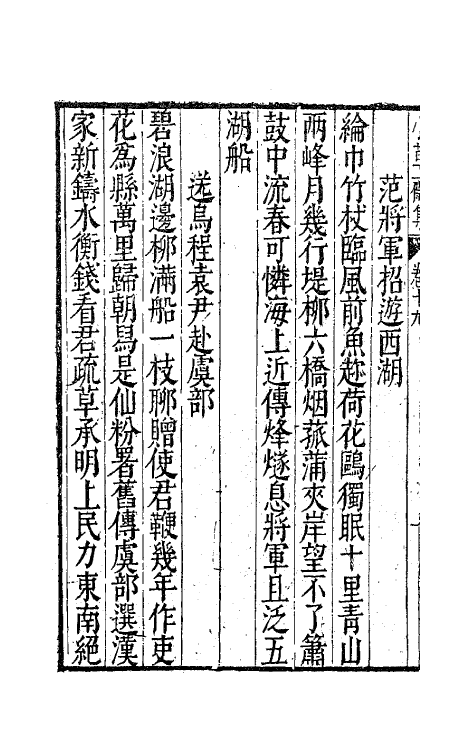 范將軍招遊西湖
綸巾竹杖臨風前魚趂荷花鷗獨眠十里青山
兩峰月幾行堤柳六橋烟菰蒲夾岸望不了簫
鼓中流春可憐海上近傳烽燧息將軍且泛五
湖船
送烏程袁尹赴虞部
碧浪湖邊柳滿船一枝聊贈使君鞭幾年作吏
花爲縣萬里歸朝舄是仙粉署舊傳虞部選漢
家新鑄水衡錢看君疏草承明上民力東南絕